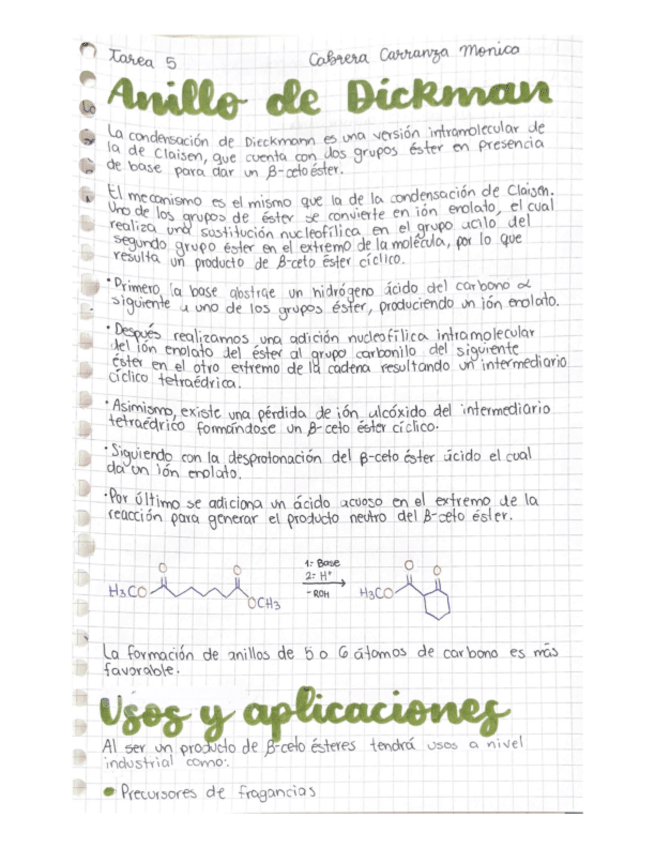 Tarea 5
Cabrera Carranza Monica
Anillo de Dickman
La condensación de Dieckmann es una versión intramolecular de
la de Claisen, que cuenta con dos grupos éster en presencia
de base para dar un β-cetoéster.
El mecanismo es el mismo que la de la condensación de Claisen.
Uno de los grupos de éster se convierte en ión enolato, el cual
realiza una sustitución nucleofílica en el grupo acilo del
segundo grupo éster en el extremo de la molécula, por lo que
resulta un producto de β-ceto éster cíclico.
• Primero la base abstrae un hidrógeno ácido del carbono α
siguiente a uno de los grupos éster, produciendo un ión enolato.
• Después realizamos una adición nucleofílica intramolecular
del ión enolato del éster al grupo carbonilo del siguiente
éster en el otro extremo de la cadena resultando un intermediario
cíclico tetraédrica.
• Asimismo, existe una pérdida de ión alcóxido del intermediario
tetraédrico formándose un β-ceto éster cíclico.
• Siguiendo con la desprotonación del β-ceto éster ácido el cual
da un ión enolato.
• Por último se adiciona un ácido acuoso en el extremo de la
reacción para generar el producto neutro del β-ceto éster.
O O 1: Base O O
2: H⁺
H3CO OCH3 - ROH H3CO
La formación de anillos de 5 o 6 átomos de carbono es más
favorable.
Usos y aplicaciones
Al ser un producto de β-ceto ésteres tendrá usos a nivel
industrial como:
• Precursores de fragancias